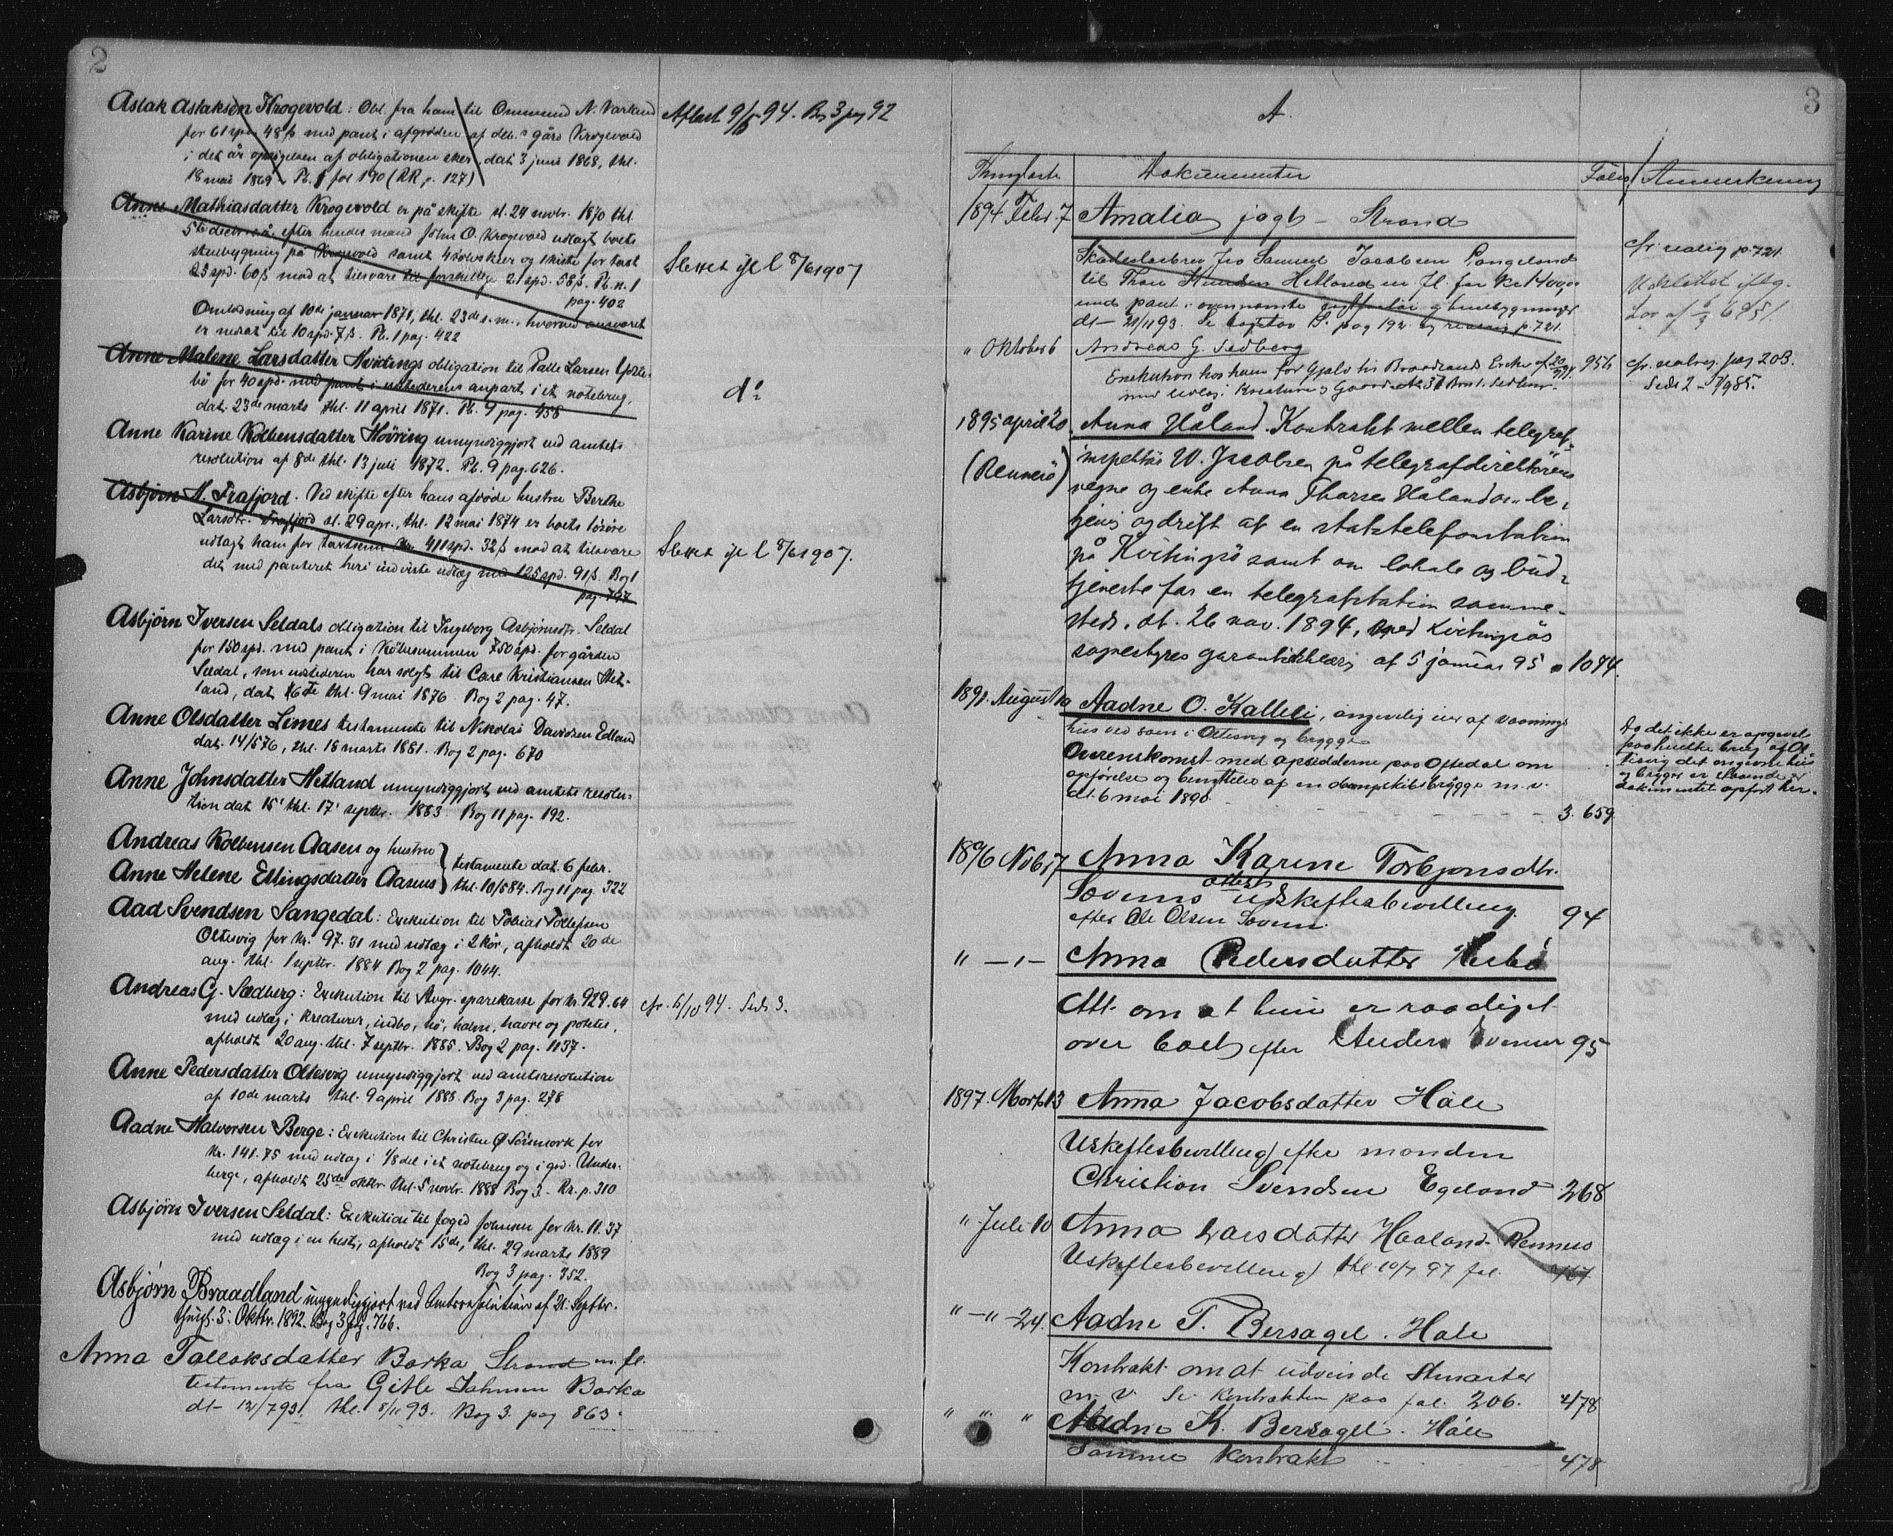 2
Aslak Aslaksen Krogevold: Obl. fra ham til Ommund N. Varland
for 61 spd. 48 ß med pant i afgrøden af deb.s gård Krogevold
i det år opsigelsen af obligationen sker, dat. 3 juni 1868, thl.
18 mai 1869. Pb. 8 fol 190 (RR p. 127)
Aflæst 9/6 94. Bog 3 pag 92
Anne Mathiasdatter Krogevold er på skifte sl. 24 novbr. 1870 thl.
5te decbr s.å. efter hendes mand John O. Krogevold udlagt boets
stuebygning på Krogevold samt 4 solvskeer og 1 kiste for taxt
23 spd. 60 ß mod at tilsvare til forskellige 21 spd. 58 ß. Pb. n. 1
pag. 402
Slettet ifl. L 8/6 1907
Omlodning af 10de januar 1871, thl. 23de s.m., hvorved ansvaret
er nedsat til 10 spd. 7 ß. Pb. 1 pag. 422
Anne Malene Larsdatter Høvrings obligation til Palle Larsen Gjilte-
bø for 40 spd. med pant i udstederens anpart i et notebrug,
dat. 23de marts thl. 11 april 1871. Pb. 9 pag. 458
do
Anne Karine Kolbensdatter Høvring umyndiggjort ved amtets
resolution af 8de thl. 13 juli 1872. Pb. 9 pag. 626.
Asbjørn N. Frafjord. Ved skifte efter hans afdøde hustru Berthe
Larsdtr. Frafjord sl. 29 apr., thl. 12 mai 1874 er boets løsøre
udlagt ham for taxtsum 411 spd. 32 ß mod at tilsvare
det med panteret heri indviste udlæg med 125 spd. 91 ß. Bog 1
pag. 797
Slettet ifl. L 8/6 1907.
Asbjørn Iversen Seldals obligation til Ingeborg Asbjørnsdtr. Seldal
for 150 spd. med pant i Købesummen 750 spd. for gården
Seldal, som udstederen har solgt til Care Kristiansen Het-
land, dat. 26de thl. 9 mai 1876. Bog 2 pag. 47.
Anne Olsdatter Limes testamente til Nikolai Davidsen Edland
dat. 14/5 76, thl. 18 marts 1881. Bog 2 pag. 670
Anne Johnsdatter Hetland umyndiggjort ved amtets resolu-
tion dat. 15' thl. 17' septbr. 1883. Bog 11 pag. 192.
Andreas Kolbensen Aasen og hustru
Anne Helene Ellingsdatter Aasens
testamente dat. 6 febr.
thl. 10/5 84. Bog 11 pag. 322
Aad Svendsen Sangedal: Exekution til Tobias Tollefsen
Oltesvig for kr. 97.31 med udlæg i 2 kör, afholdt 20de
aug. thl. 1 septbr. 1884 Bog 2 pag. 1044.
Andreas G. Sædberg: Exekution til Avgr. sparekasse for kr 929.64
med udlæg i kreaturer, indbo, hø, halm, havre og poteter,
afholdt 20 aug. thl. 7 septbr. 1885. Bog 2 pag. 1137.
cfr. 6/10 94. Side 3.
Anne Pedersdatter Oltesvig umyndiggjort ved amtsresolution
af 10de marts thl. 9 april 1888. Bog 3 pag. 278
Aadne Halvorsen Berge: Exekution til Christen Ø Sørsmork for
kr. 141.75 med udlæg i 1/8 del i et notebrug og i gd. Under-
berge, afholdt 25de oktbr. thl. 5 novbr. 1888 Bog 3. Rr. p. 310
Asbjørn Iversen Seldal: Exekution til foged Johnsen for kr. 11.37
med udlæg i en hest, afholdt 15de, thl. 29 marts 1889
Bog 3 pag. 352.
Asbjørn Braadland umyndiggjort ved Amtsresolution af 21. Septbr.
thingl. 3. Oktbr. 1892. Bog 3 pag. 766.
Anna Tolloksdatter Barka Strand m. fl.
testamente fra Gitle Jahnsen Barka
dt 12/7 93, thl. 8/11 93. Bog 3. pag 863.
3
A.
Thinglæst Dokumenter Folio Anmerkning
1894 Febr. 7 Amalia jagt – Strand
Skadesløsbrev fra Samuel Jacobsen Langeland
til Thore Hetland m fl. for Kr 1400,00
med pant i ovennævnte
dt 21/11 93. Se bogstav S. pag 192. og realreg p. 721.
cfr. realreg p 721.
Udslettet ifølg.
Lov af
" Oktober 6 Andreas G. Sedberg
Exekution hos ham for Gjalv 956
med udlæg i Kreaturer
cfr. realreg. pag 203.
Side 2 – 1985.
1895 april 20 Anna Håland. Kontrakt mellem telegraf-
(Rennesø) inspektør W. Jacobsen på telegrafdirektørens
vegne og enke Anna Thorsen Håland om be-
tjening og drift af en statstelefonstation
på Kvitingsø samt om lokale og bud-
tjeneste for en telegrafstation samme-
steds, dt. 26 nov. 1894, med Kvitingsøs
sognestyres garantierklæring af 5 januar 95 1044.
1890. August 19 Aadne O. Kallesi, angivelig eier af vaanings
hus ved søen i Oltesvig og brygge
Overenskomst med opsidderne paa Oftedal om
opførelse og benyttelse af en dampskibsbrygge m.v.
dt. 6 mai 1890. 3. 659
Da det ikke er opgivet
paa hvilke brug af Ol-
tesvig det angivne hus
og brygge er staaende er
dokumentet opført her.
1896 Novb 17 Anna Karine Torbjonsdtr.
Sovens attest udskiftesbevilling 94
efter Ole Olsen Soven.
" – " – Anna Pedersdatter Helsø
Att. om at hun er raadiget
over boet efter Anders 95
1897. Marts 13 Anna Jacobsdatter Hale
Uskiftesbevilling efter manden
Christian Svendsen Egeland 268
" Juli 10 Anna Larsdatter Haaland Rennesø
Uskiftesbevilling thl 10/7 97 fol. 467
" – " – 24. Aadne T. Bersagel. Hale
Kontrakt om at udvinde
m. v. Se kontrakten paa fol. 206. 478
" " " Aadne K. Bersagel. Hale
Samme Kontrakt 478